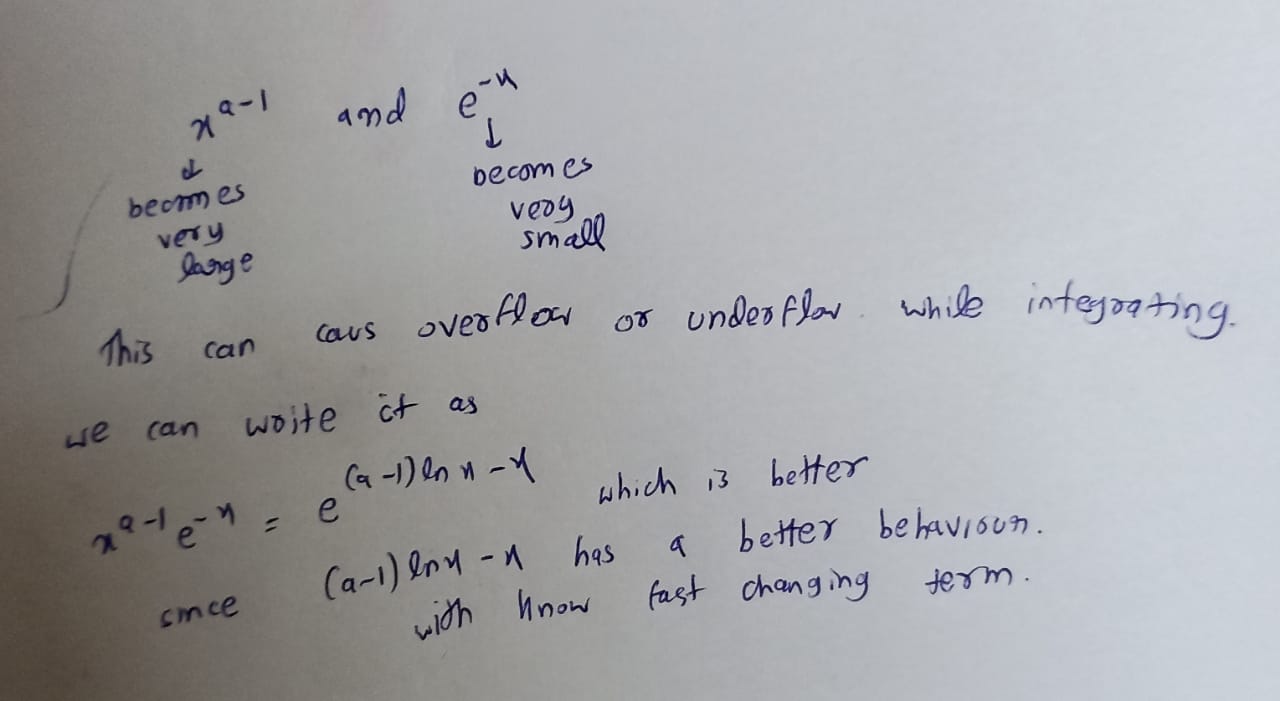 x^{a-1} and e^{-x}
↓ ↓
becomes becomes
very very
large small
This can caus overflow or underflow. while integrating.
we can write it as
x^{a-1} e^{-x} = e^{(a-1) ln x - x} which is better
since (a-1) ln x - x has a better behaviour.
with know fast changing term.